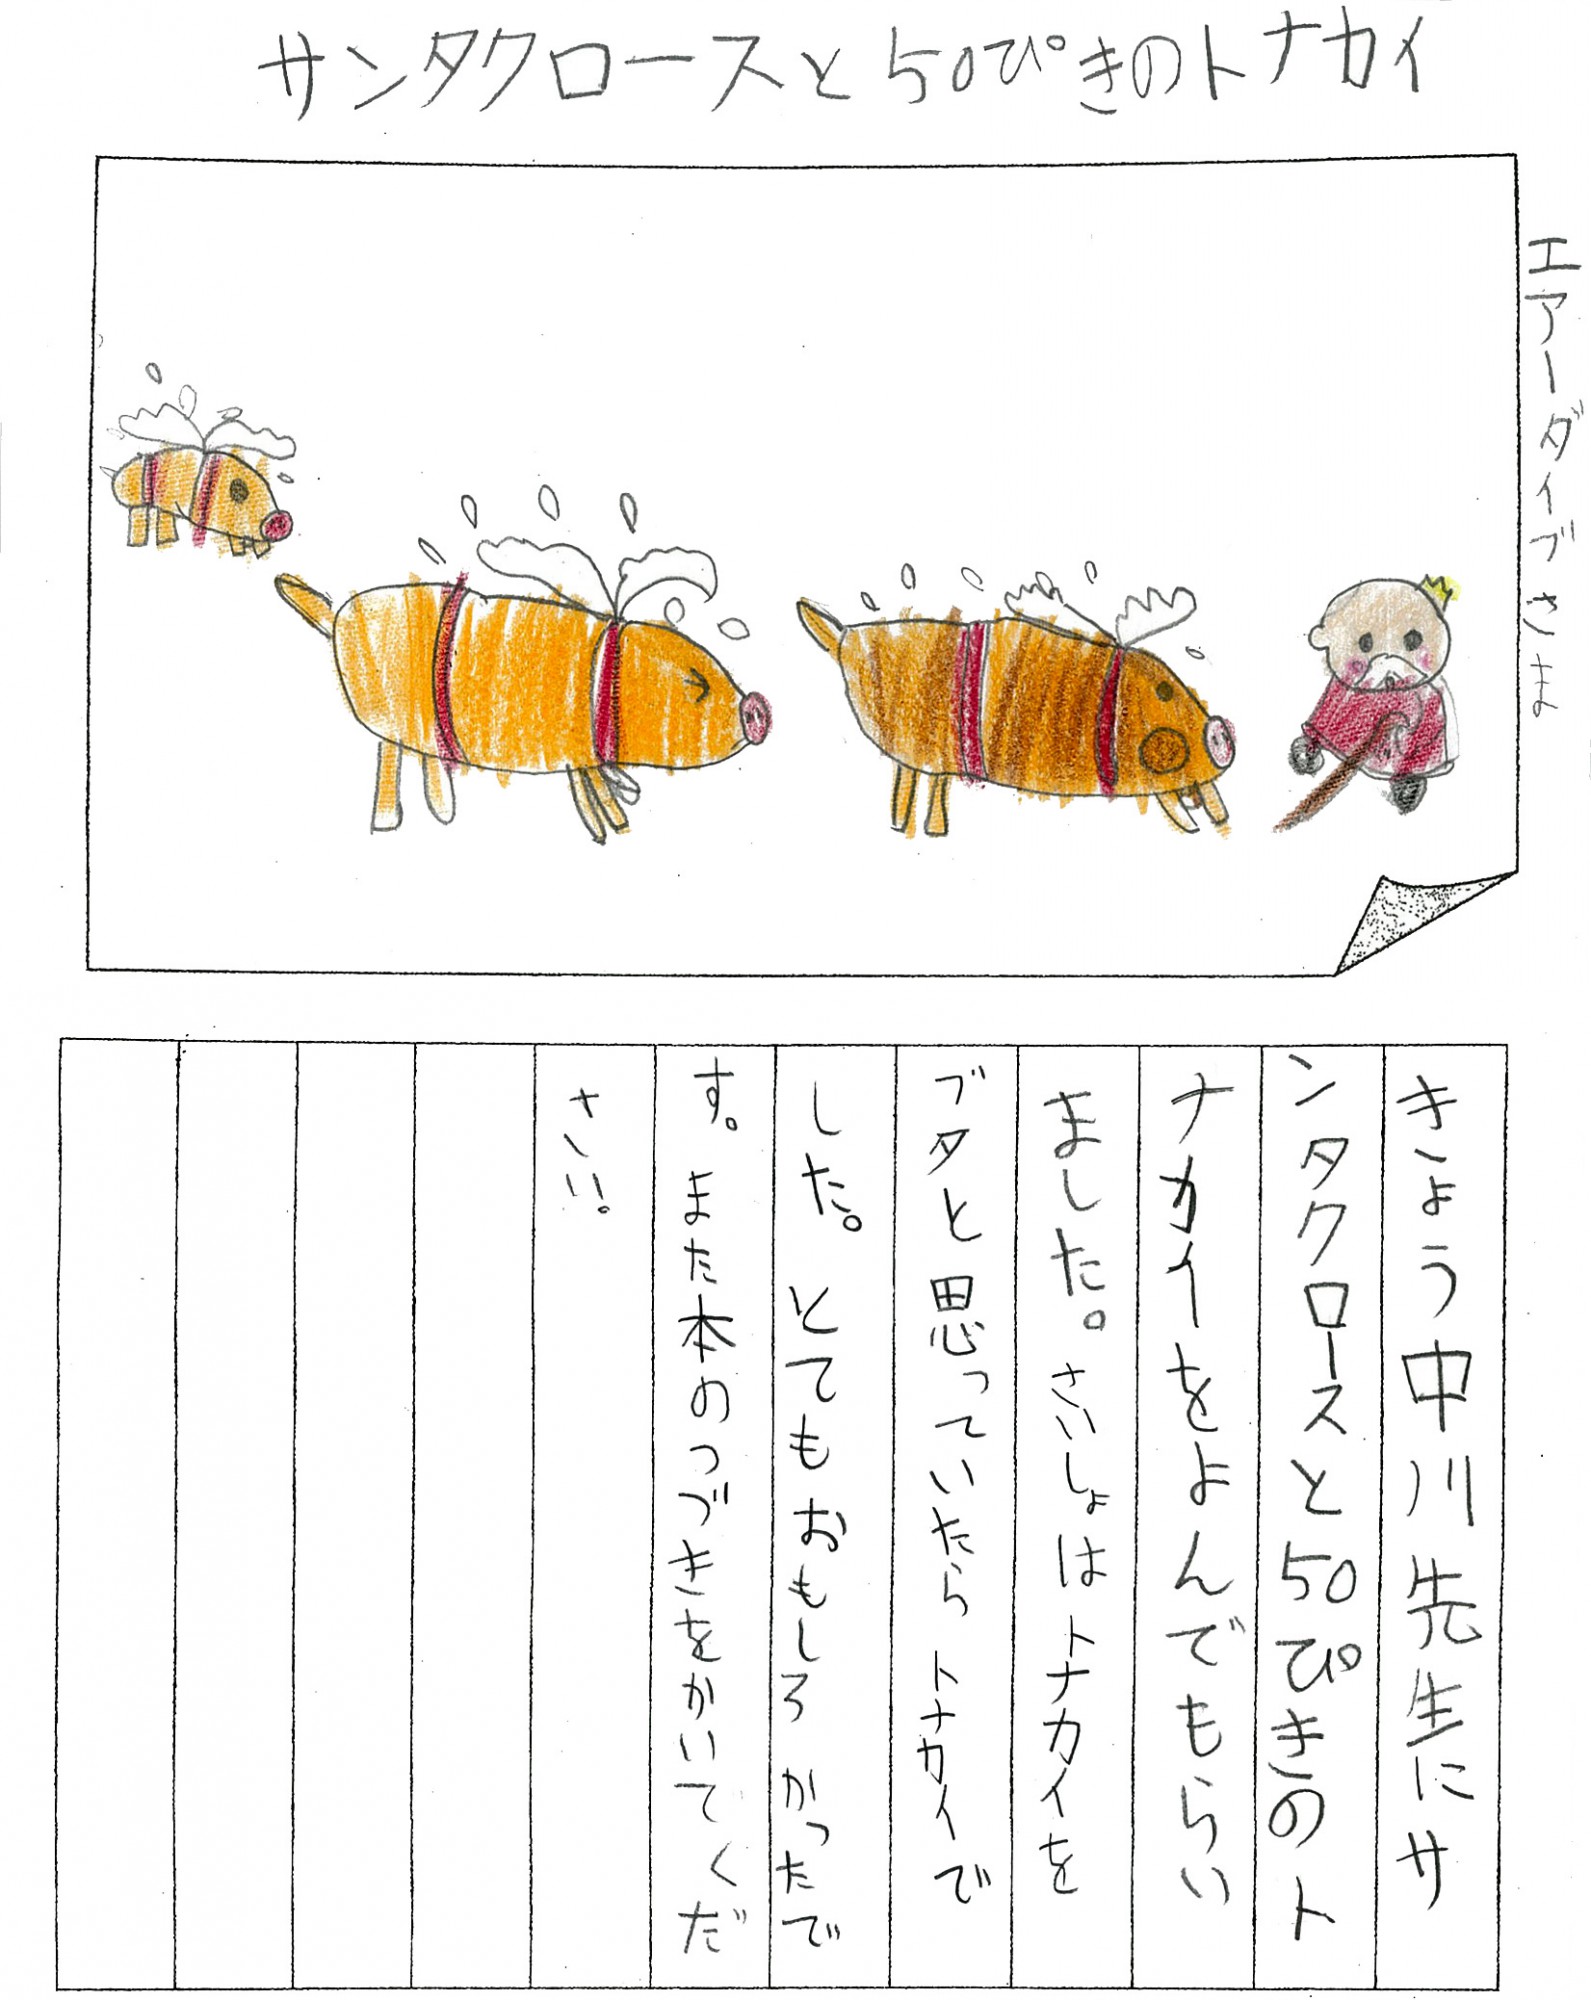 サンタクロースと50ぴきのトナカイ
エアーダイブさま
きょう中川先生にサ
ンタクロースと50ぴきのト
ナカイをよんでもらい
ました。さいしょはトナカイを
ブタと思っていたらトナカイで
した。とてもおもしろかったで
す。また本のつづきをかいてくだ
さい。